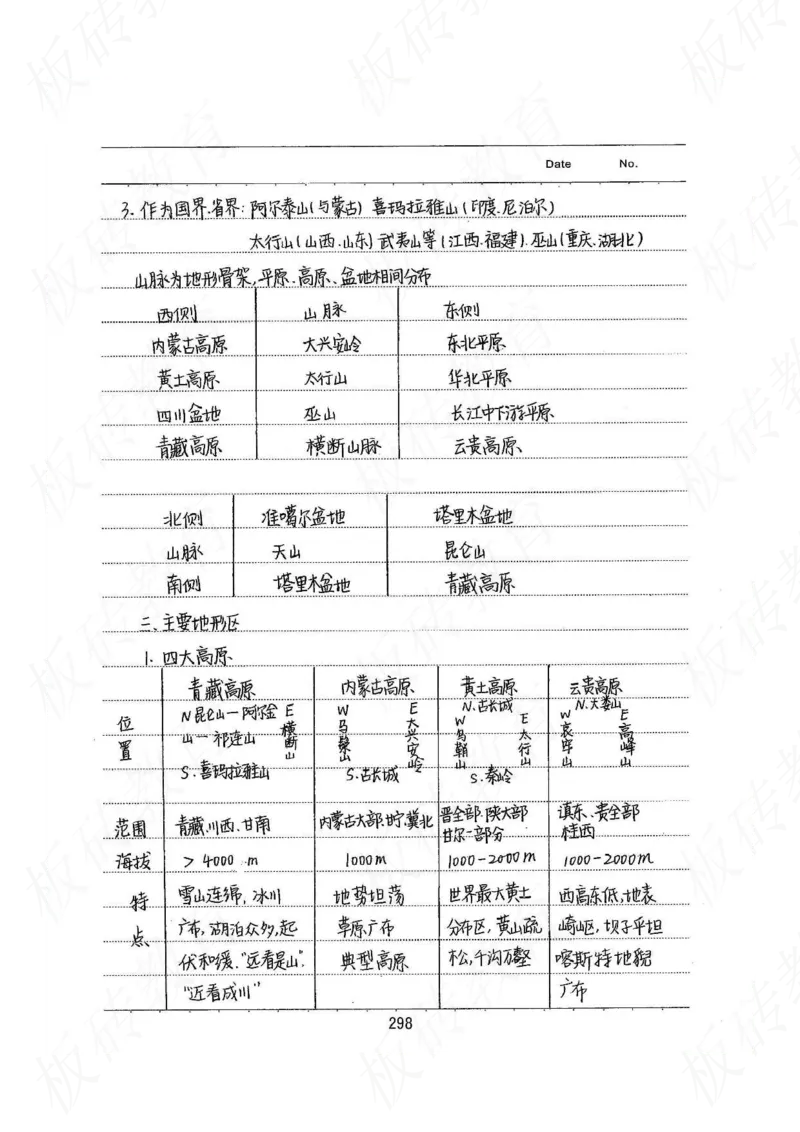 Date No.
3. 作为国界.省界: 阿尔泰山(与蒙古) 喜玛拉雅山(印度.尼泊尔)
太行山(山西.山东) 武夷山等(江西.福建). 巫山(重庆.湖北)
山脉为地形骨架,平原.高原、盆地相间分布
西侧 山脉 东侧
内蒙古高原 大兴安岭 东北平原
黄土高原 太行山 华北平原
四川盆地 巫山 长江中下游平原
青藏高原 横断山脉 云贵高原
北侧 准噶尔盆地 塔里木盆地
山脉 天山 昆仑山
南侧 塔里木盆地 青藏高原
二、主要地形区
1. 四大高原
青藏高原 内蒙古高原 黄土高原 云贵高原
位置 N 昆仑山一阿尔金山一祁连山 E 横断山 S:喜玛拉雅山 W 马鬃山 E 大兴安岭 S:古长城 N.古长城 W 乌鞘山 E 太行山 S:秦岭 N.大娄山 W 哀牢山 E 高峰山
范围 青藏.川西.甘南 内蒙古大部.宁.冀北 晋全部.陕大部甘尔一部分 滇东、贵全部桂西
海拔 >4000 m 1000m 1000-2000m 1000-2000m
特点 雪山连绵,冰川 地势坦荡 世界最大黄土 西高东低,地表
广布,湖泊众多,起 草原广布 分布区,黄山疏 崎岖,坝子平坦
伏和缓."远看是山". 典型高原 松,千沟万壑 喀斯特地貌
"近看成川" 广布
298
板砖教育